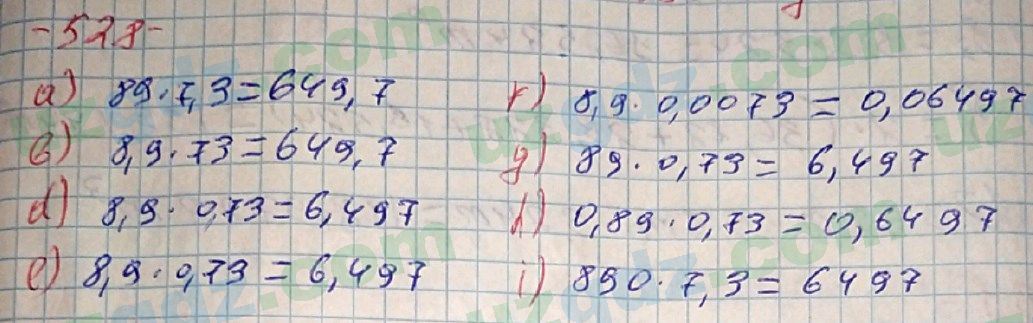 -528-
a) 89·7,3=649,7
b) 8,9·73=649,7
d) 8,9·0,73=6,497
e) 8,9·0,73=6,497
f) 8,9·0,0073=0,06497
g) 89·0,73=6,497
h) 0,89·0,73=0,6497
i) 890·7,3=6497
uzgdz.com